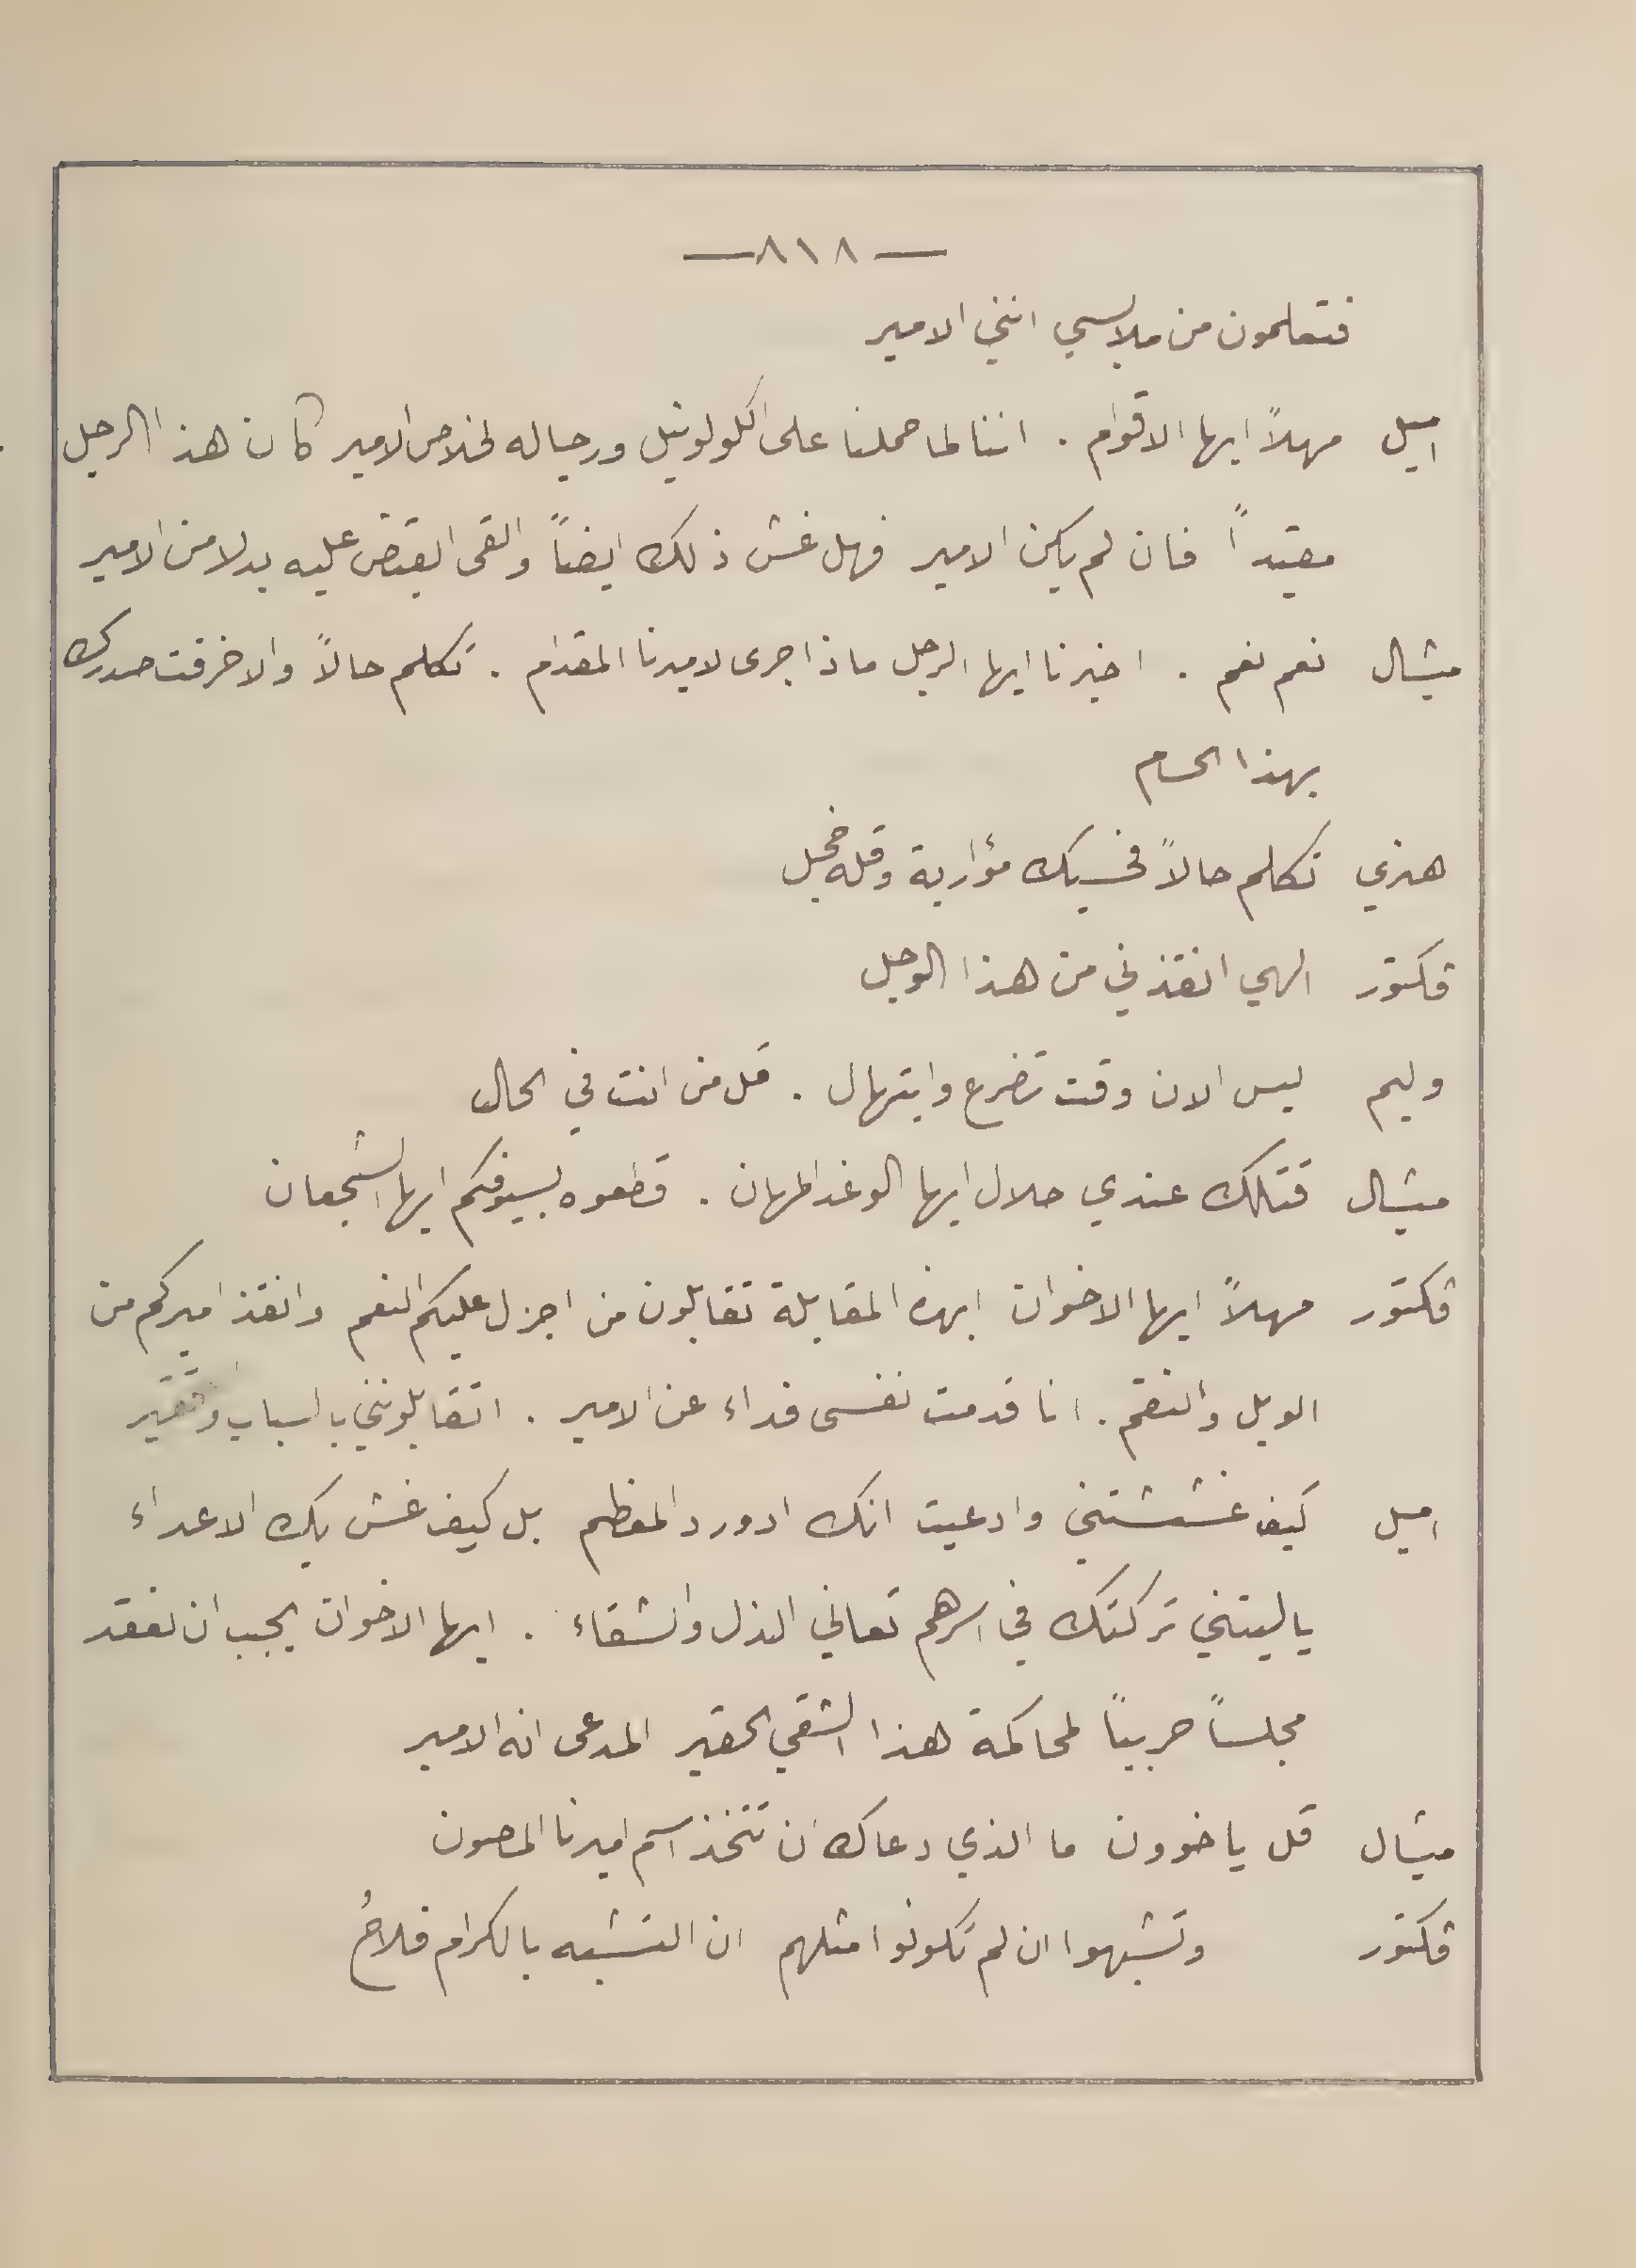 —٨١٨—
فتعلمون من ملابسي انني الامير
اميل مهلاً ايها الاقوام . اننا لما حملنا على الكولونيل ورجاله لخلاص الامير كان هذا الرجل
مقيداً فان لم يكن الامير فهل غش ذلك ايضاً والقى القبض عليه بدلا من الامير
ميشال نعم نعم . اخبرنا ايها الرجل ماذا جرى لاميرنا المقدام . تكلم حالاً والا خرقت صدرك
بهذا الحسام
هنري تكلم حالاً فحسبك مؤاربة وقله خجل
فكتور الهي انقذني من هذا الوجل
وليم ليس الان وقت تضرع وابتهال . قل من انت في الحال
ميشال قتلك عندي حلال ايها الوغد المهان . قطعوه بسيوفكم ايها الشجعان
فكتور مهلاً ايها الاخوان ابهذه المقابلة تقابلون من اجزل عليكم النعم وانقذ اميركم من
الويل والنقم . انا قدمت نفسى فداء عن الامير . اتقابلونني بالسباب
اميل كيف غششتني وادعيت انك ادورد المعظم بل كيف غش بك الاعداء
ياليتني تركتك في اسرهم تعاني الذل والشقاء . ايها الاخوان يجب ان نعقد
مجلساً حربياً لمحاكمة هذا الشقي الحقير المدعى انه الامير
ميشال قل يا خوون ما الذي دعاك ان تتخذ اسم اميرنا المصون
فكتور وتشبهوا ان لم تكونوا مثلهم ان التشبه بالكرام فلاحُ